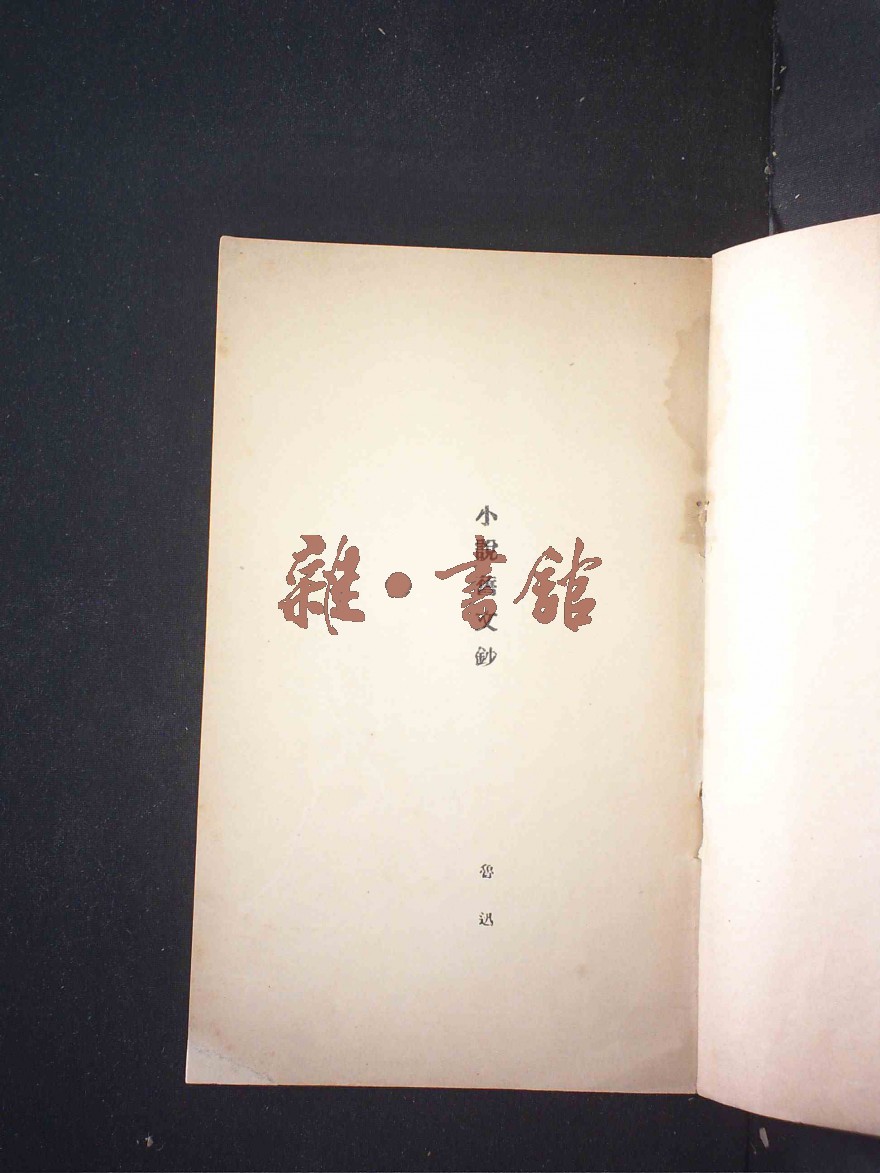 小說舊文鈔
魯迅
雜·書館